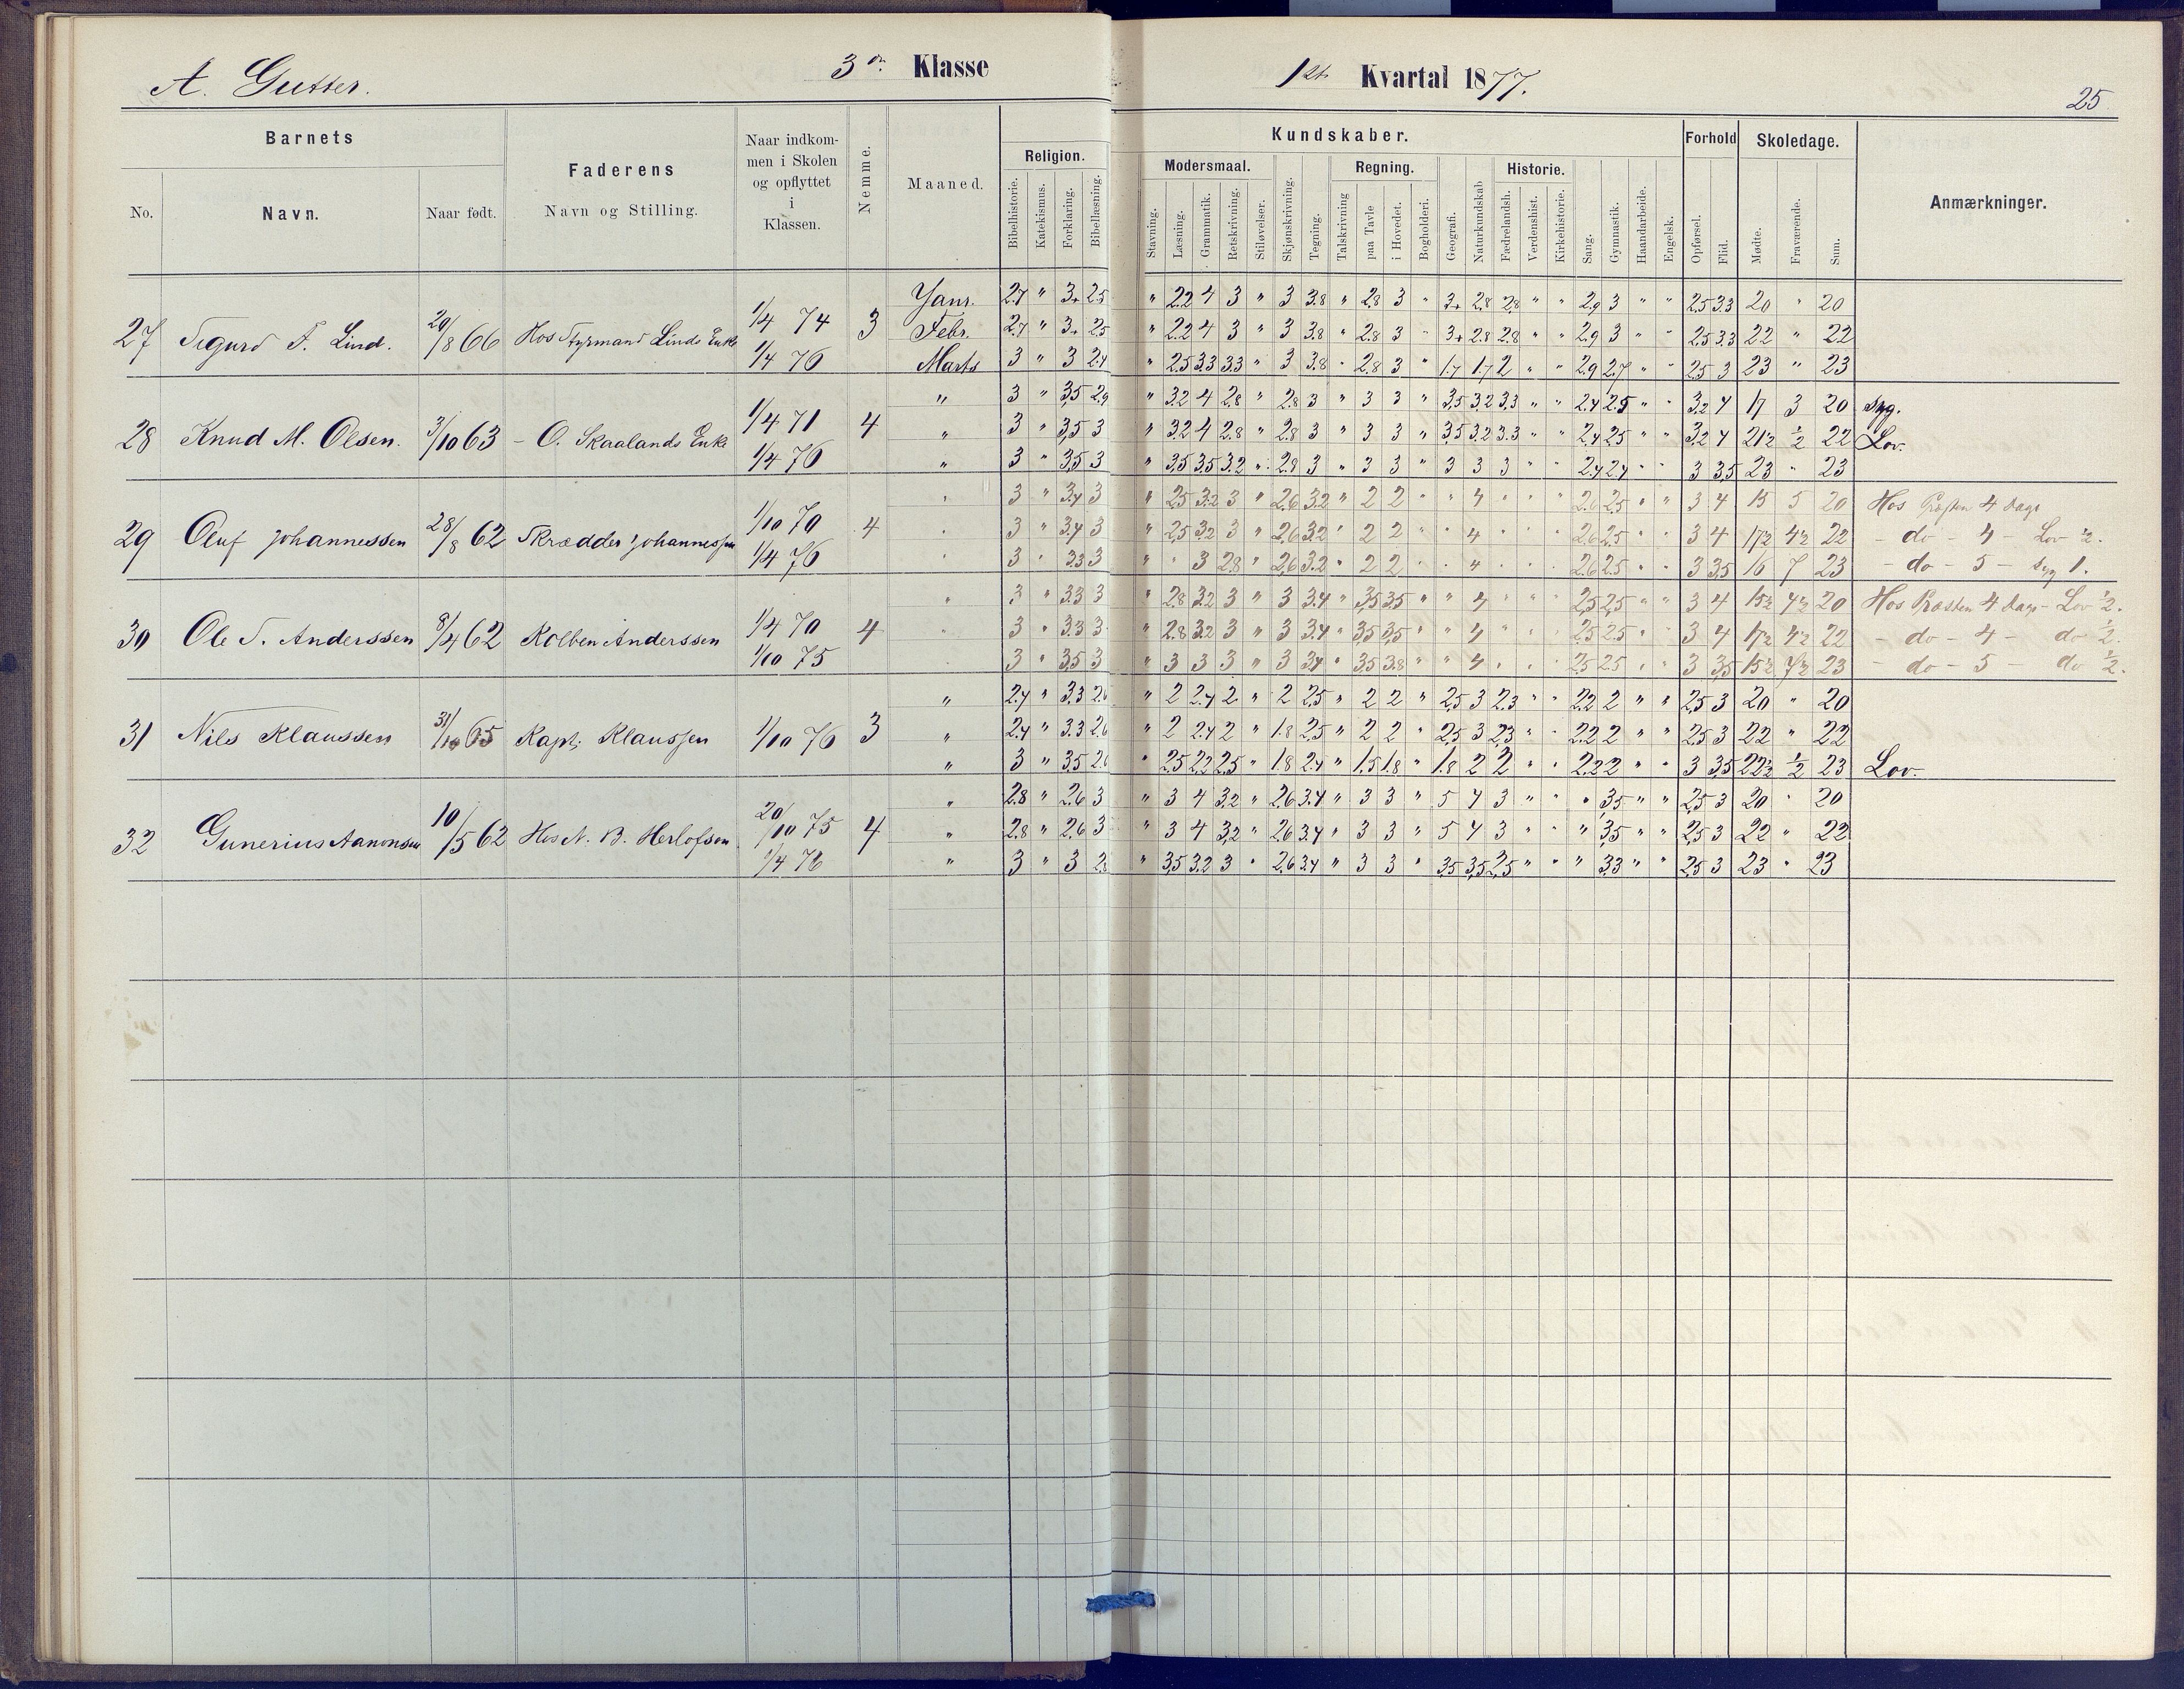 A. Gutter. 3die Klasse 1ste Kvartal 1877.
25
Barnets
No. Navn. Naar født.
Faderens
Navn og Stilling.
Naar indkom-
men i Skolen
og opflyttet
i
Klassen.
Nemme.
Maaned.
Kundskaber.
Religion.
Bibelhistorie. Katekismus. Forklaring. Bibellæsning.
Modersmaal.
Stavning. Læsning. Grammatik. Retskrivning. Stiløvelser. Skjønskrivning. Tegning.
Regning.
Talskrivning paa Tavle i Hovedet. Bogholderi. Geografi. Naturkundskab
Historie.
Fædrelandsh. Verdenshist. Kirkehistorie. Sang. Gymnastik. Haandarbeide. Engelsk.
Forhold
Opførsel. Flid.
Skoledage.
Mødte. Fraværende. Sum.
Anmærkninger.
Janr. 2.7 " 3+ 2.5 " 2.2 4 3 " 3 3.8 " 2.8 3 " 3+ 2.8 2.8 " " 2.9 3 " " 2.5 3.3 20 " 20
27 Sigurd F. Lind. 20/8 66 Hos Styrmand Linds Enke 1/4 74 3 Febr. 2.7 " 3+ 2.5 " 2.2 4 3 " 3 3.8 " 2.8 3 " 3+ 2.8 2.8 " " 2.9 3 " " 2.5 3.3 22 " 22
1/4 76 Marts 3 " 3 2.4 " 2.5 3.3 3.3 " 3 3.8 " 2.8 3 " 1.7 1.7 2 " " 2.9 2.7 " " 2.5 3 23 " 23
" 3 " 3.5 2.9 " 3.2 4 2.8 " 2.8 3 " 3 3 " 3.5 3.2 3.3 " " 2.4 2.5 " " 3.2 4 17 3 20 syg.
28 Knud M. Olsen. 3/10 63 - O. Skaalands Enke 1/4 71 4 " 3 " 3.5 3 " 3.2 4 2.8 " 2.8 3 " 3 3 " 3.5 3.2 3.3 " " 2.4 2.5 " " 3.2 4 21½ ½ 22 Lov.
1/4 76 " 3 " 3.5 3 " 3.5 3.5 3.2 " 2.8 3 " 3 3 " 3 3 3 " " 2.4 2.4 " " 3 3.5 23 " 23
" 3 " 3.4 3 " 2.5 3.2 3 " 2.6 3.2 " 2 2 " " 4 " " " 2.6 2.5 " " 3 4 15 5 20 Hos Præsten 4 dage
29 Oluf Johannessen 28/8 62 Skrædder Johannessen 1/10 70 4 " 3 " 3.4 3 " 2.5 3.2 3 " 2.6 3.2 " 2 2 " " 4 " " " 2.6 2.5 " " 3 4 17½ 4½ 22 - do - 4 - Lov ½.
1/4 76 " 3 " 3.3 3 " " 3 2.8 " 2.6 3.2 " 2 2 " " " " " " 2.6 2.5 " " 3 3.5 16 7 23 - do - 5 - syg 1.
" 3 " 3.3 3 " 2.8 3.2 3 " 3 3.4 " 3.5 3.5 " " 4 " " " 2.5 2.5 " " 3 4 15½ 4½ 20 Hos Præsten 4 dage - Lov ½.
30 Ole T. Anderssen 8/4 62 Kolben Anderssen 1/4 70 4 " 3 " 3.3 3 " 2.8 3.2 3 " 3 3.4 " 3.5 3.5 " " 4 " " " 2.5 2.5 " " 3 4 17½ 4½ 22 - do - 4 - do ½.
1/10 75 " 3 " 3.5 3 " 3 3 3 " 3 3.4 " 3.5 3.8 " " 4 " " " 2.5 2.5 " " 3 3.5 15½ 7½ 23 - do - 5 - do ½.
" 2.4 " 3.3 2.6 " 2 2.4 2 " 2 2.5 " 2 2 " 2.5 3 2.3 " " 2.2 2 " " 2.5 3 20 " 20
31 Nils Klaussen 31/10 65 Kapt. Klaussen 1/10 76 3 " 2.4 " 3.3 2.6 " 2 2.4 2 " 1.8 2.5 " 2 2 " 2.5 3 2.3 " " 2.2 2 " " 2.5 3 22 " 22
" 3 " 3.5 2.6 " 2.5 2.2 2.5 " 1.8 2.4 " 1.5 1.8 " 1.8 2 2 " " 2.2 2 " " 3 3.5 22½ ½ 23 Lov.
" 2.8 " 2.6 3 " 3 4 3.2 " 2.6 3.4 " 3 3 " 5 4 3 " " " 3.5 " " 2.5 3 20 " 20
32 Gunerius Aanonsen 10/5 62 Hos N. B. Herlofson 20/10 75 4 " 2.8 " 2.6 3 " 3 4 3.2 " 2.6 3.4 " 3 3 " 5 4 3 " " " 3.5 " " 2.5 3 22 " 22
1/4 76 " 3 " 3 2.8 " 3.5 3.2 3 " 2.6 3.4 " 3 3 " 3.5 3.5 2.5 " " " 3.3 " " 2.5 3 23 " 23